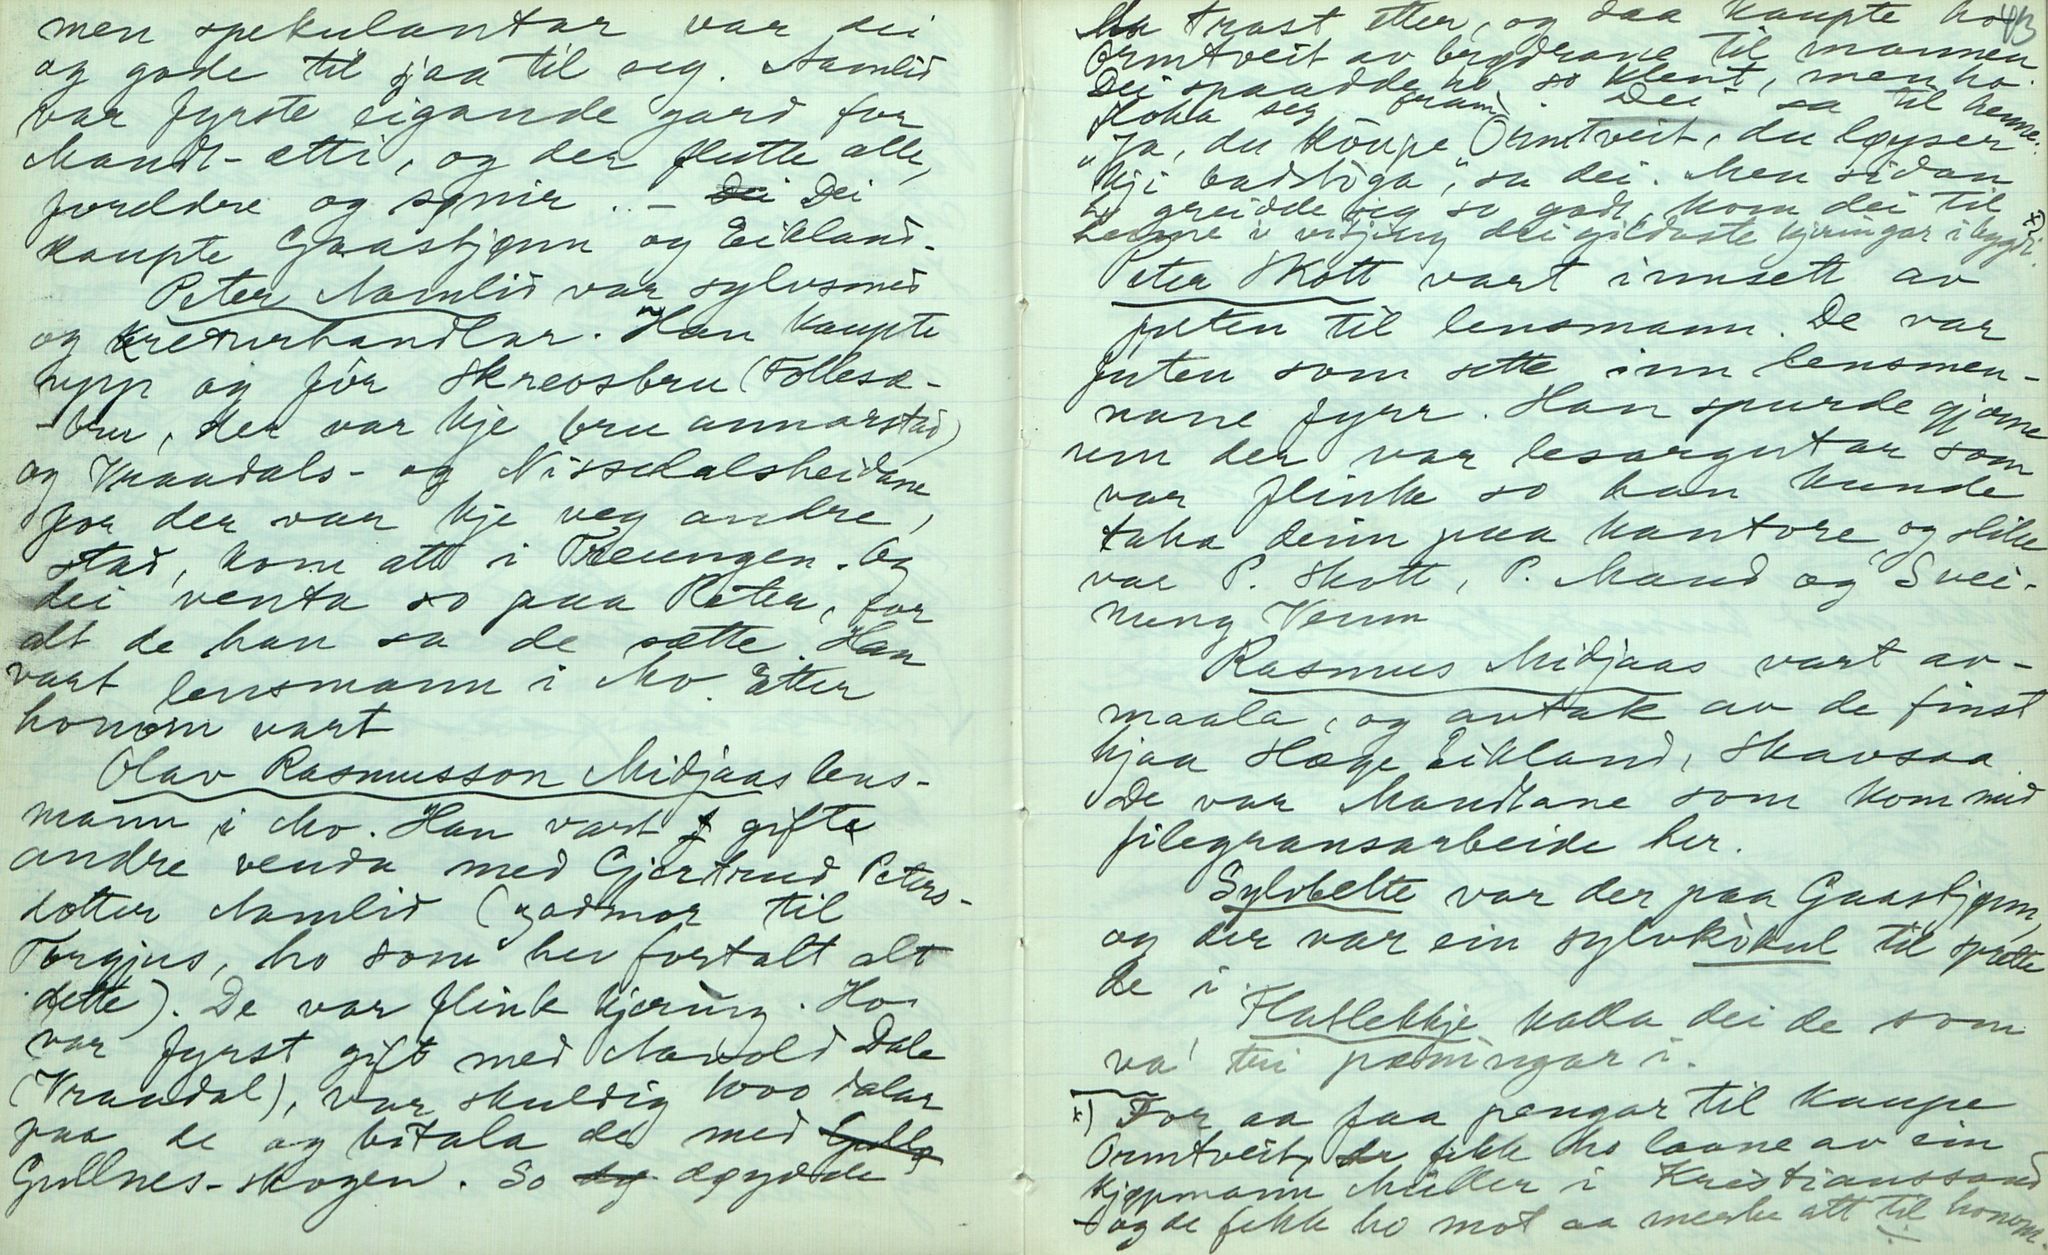 men spekulantar var dei
og gode til sjaa til seg. Aamlid
var fyrste eigande gard for
Mandt-ætti, og der flutte alle,
foreldre og synir. – Dei Dei
kaupte Gaastjønn og Eikland.
Peter Aamlid var sylvsmed
og kreturhandlar. Han kaupte
upp og fór Skreosbru (Follesæ-
-bru, der var kje bru annarstad)
og Vraadals- og Nissedalsheidane
for der var kje veg andre,
stad, kom att i Treungen. Og
dei venta so paa Peter, for
alt de han sa de sætte. Han
vart lensmann i Mo. Etter
honom vart
Olav Rasmusson Midjaas lens-
mann i Mo. Han vart gifte
andre venda med Gjertrud Peters-
dotter Aamlid (godmor til
Torgjus, ho som hev fortalt alt
dette). De var flink kjering. Ho
var fyrst gift med Aavold Dale
(Vraadal), var skuldig 1000 dalar
paa de og bitala de med Gulln
Gullnes-skogen. So og døydde
43
han trast etter, og saa kaupte ho
Ormtveit av brødrane til mannen.
Dei spaadde ho so klent, men ho
stoka seg fram. Dei sa til henne:
"Ja, du kôupe Ormtveit, du løyser
kji badstôga", sa dei. Men sidan
ho greidde seg so godt, kom dei til
henne i vitjing dei gildaste kjeringar i bygdi. x)
Peter Skott vart innsett av
futen til lensmann. De var
futen som sette inn lensmen-
nane fyrr. Han spurde gjønne
um der var lesargutar som
var flinke so han kunde
taka deim paa kontore, og slike
var P. Skott, P. Maud og Svei-
nung Veum
Rasmus Midjaas vart av-
maala, og avtak av de finst
hjaa Høge Eikland, Skavsaa.
De var Mandtane som kom med
filegransarbeide her.
Sylvbelte var der paa Gaastjønn,
og der var ein sylvkôkul til sprette
de i.
Flatlekkje kalla dei de som
va' tri pæningar i.
x) For aa faa pengar til kaupe
Ormtveit, fekk ho laane av ein
kjøpmann Müller i Kristianssand
– og de fekk ho mot aa merke att til honom.